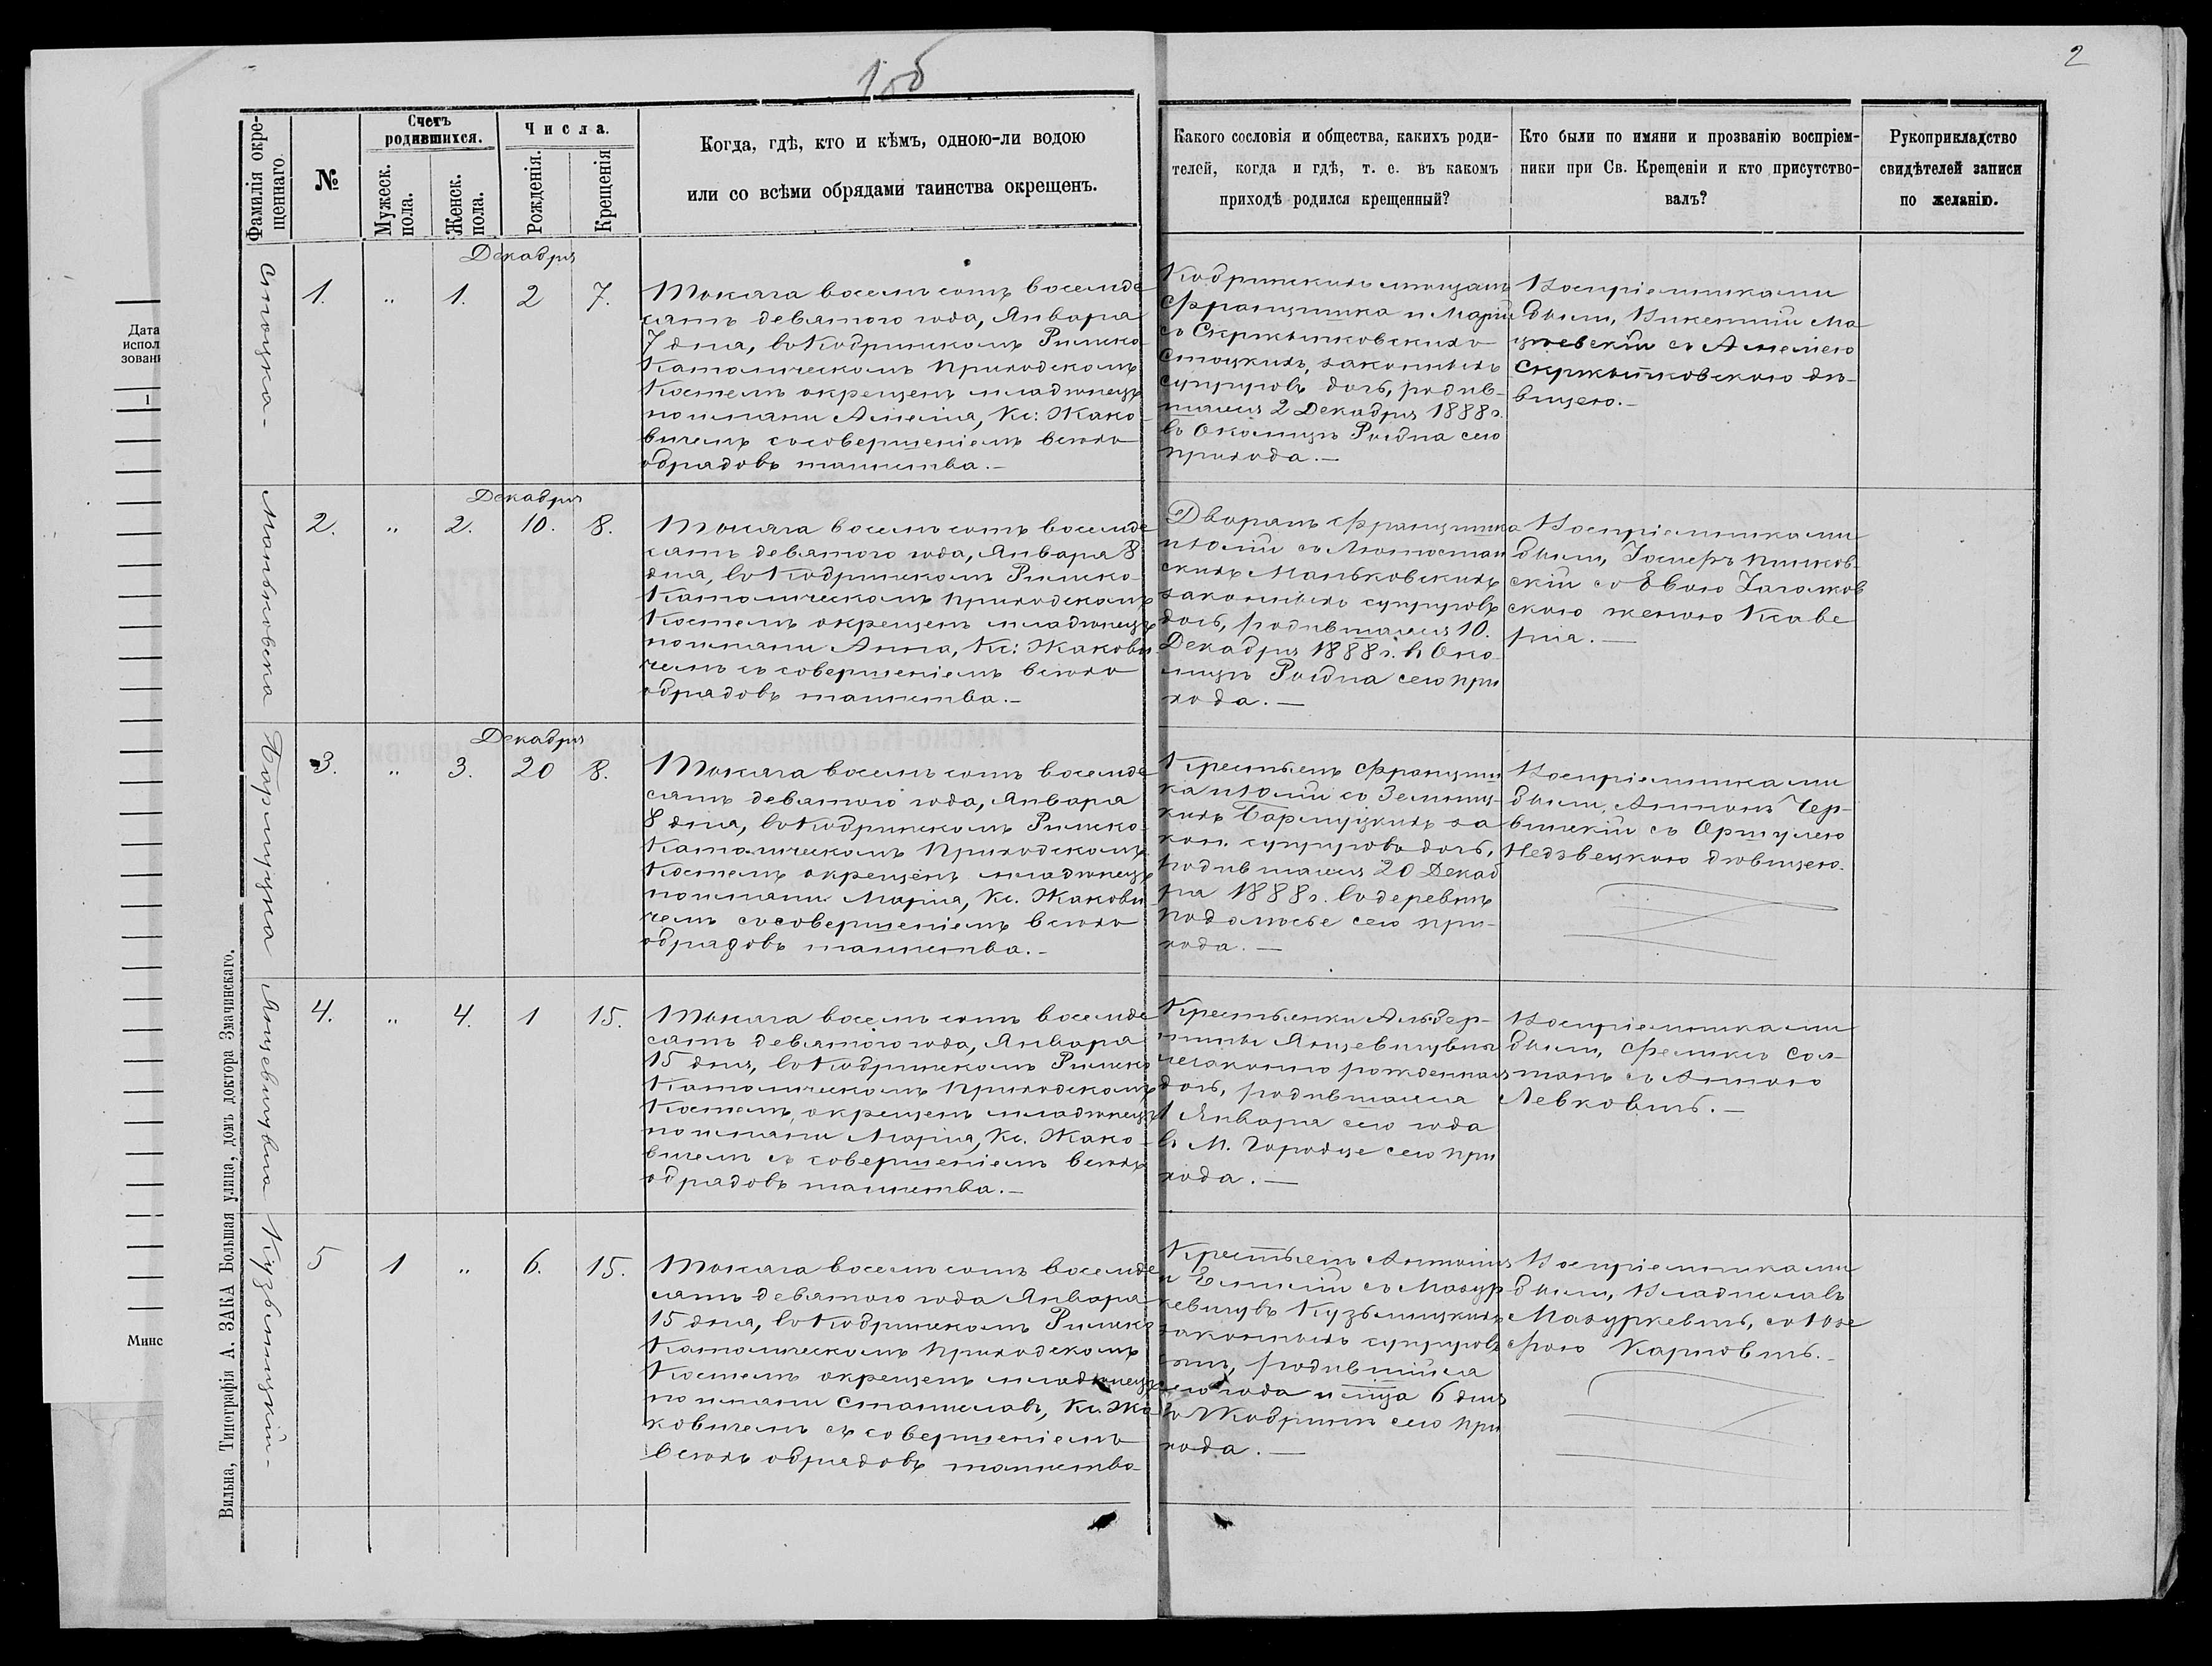 1об
2
Дата
испол
зовані
1
Минс
Вильна, Типографія А. ЗАКА Большая улица, домъ доктора Змачинскаго.
Фамилія окре-
щеннаго.
№
Счетъ
родившихся.
Мужеск.
пола.
Женск.
пола.
Числа.
Рожденія.
Крещенія
Когда, гдѣ, кто и кѣмъ, одною-ли водою
или со всѣми обрядами таинства окрещенъ.
Какого сословія и общества, какихъ роди-
телей, когда и гдѣ, т. е. въ какомъ
приходѣ родился крещенный?
Кто были по имяни и прозванію воспріем-
ники при Св. Крещеніи и кто присутство-
валъ?
Рукоприкладство
свидѣтелей записи
по желанію.
Стоцка-
Декабря
1. „ 1. 2 7.
Тысяча восемьсотъ восемьде
сятъ девятого года, Января
7 дня, въ Кобринскомъ Римско-
Католическомъ Приходскомъ
Костелѣ окрещенъ младѣнецъ
по имяни Амелія, Кс: Жако-
вичемъ съ совершеніемъ всѣхъ
обрядовъ таинства.-
Кобринскихъ мѣщанъ
Францишка и Маріи
съ
Стоцкихъ, законныхъ
супруговъ дочь, родив-
шаяся 2 Декабря 1888 г.
въ Околицѣ Рыдна сего
прихода.-
Воспріемниками
были, Викентій Ма
цѣевскій съ Амеліею
дѣ-
вицею.-
Маньковска
Декабря
2. „ 2. 10. 8.
Тысяча восемьсотъ восемьде
сятъ девятого года, Января 8
дня, въ Кобринскомъ Римско-
Католическомъ Приходскомъ
Костелѣ окрещенъ младѣнецъ
по имяни Анна, Кс: Жакови
чемъ съ совершеніемъ всѣхъ
обрядовъ таинства.-
Дворянъ Францишка
и Юліи съ Лютостан
скихъ Маньковскихъ
законныхъ супруговъ
дочь, родившаяся 10.
Декабря 1888 г. въ Око-
лицѣ Рыдна сего при
хода.-
Воспріемниками
были, Іосифъ
скій съ Евою
скою женою Ксаве
рія.-
Бармуцка
Декабря
3. „ 3. 20 8.
Тысяча восемьсотъ восемьде
сятъ девятого года, Января
8 дня, въ Кобринскомъ Римско-
Католическомъ Приходскомъ
Костелѣ окрещенъ младѣнецъ
по имяни Марія, Кс. Жакови-
чемъ съ совершеніемъ всѣхъ
обрядовъ таинства.-
Крестьянъ Франциш
ка и Юліи съ
кихъ Бармуцкихъ за
кон. супруговъ дочь,
родившаяся 20 Декаб
ря 1888 г. въ деревнѣ
Подолѣсье сего при-
хода.-
Воспріемниками
были, Антонъ Чер-
винскій съ Оршулею
Недзвецкою дѣвицею.
Янцевичувна
4. „ 4. 1 15.
Тысяча восемьсотъ восемьде
сятъ девятого года, Января
15 дня, въ Кобринскомъ Римско
Католическомъ Приходскомъ
Костелѣ, окрещенъ младѣнецъ
по имяни Марія, Кс. Жако-
вичемъ съ совершеніемъ всѣхъ
обрядовъ таинства.-
Крестьянки Альбер-
тины Янцевичувны
незаконно рожденная
дочь, родившаяся
1 Января сего года
въ М. Городце сего при
хода.-
Воспріемниками
были, Феликсъ Сол-
танъ съ Анною
Левковичъ.-
Кузьмицкій-
5 1 „ 6. 15.
Тысяча восемьсотъ восемьде
сятъ девятого года Января
15 дня, въ Кобринскомъ Римско
Католическомъ Приходскомъ
Костелѣ окрещенъ младѣнецъ
по имяни Станиславъ, Кс. Жа
ковичемъ съ совершеніемъ
всѣхъ обрядовъ таинства
Крестьянъ Антонія
и Емиліи съ Мазур
кевичувъ Кузьмицкихъ
законныхъ супруговъ
сынъ, родившійся
сего года и мца 6 дня
въ Кобринѣ сего при
хода.-
Воспріемниками
были, Владиславъ
Мазуркевичъ, съ Юзе
фою Карповичъ.-